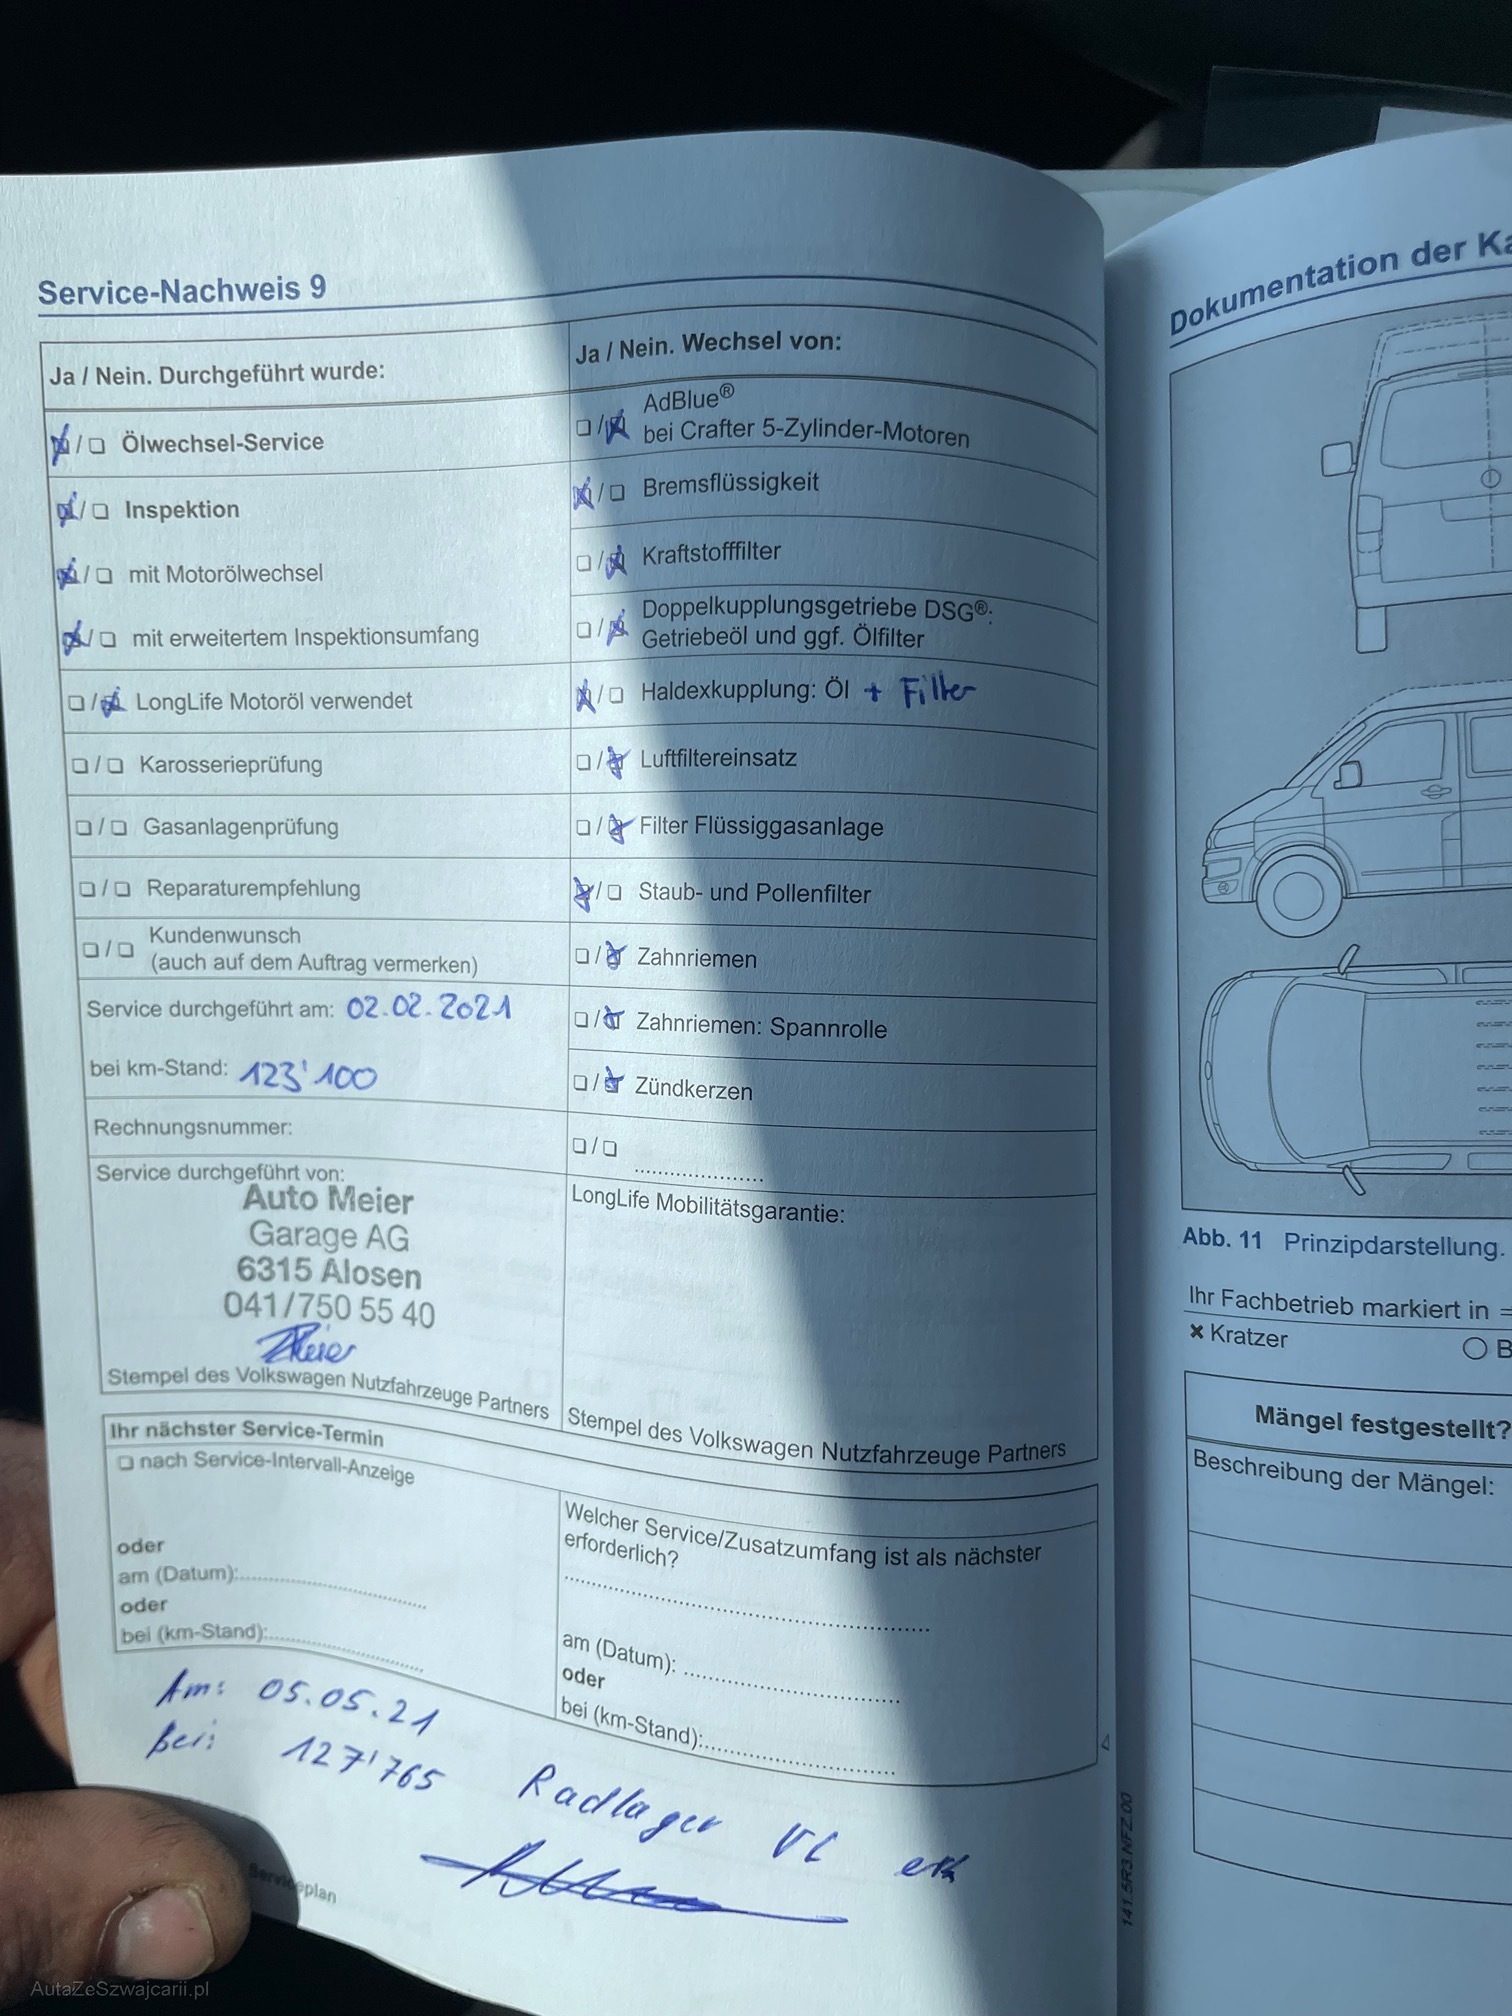 Service-Nachweis 9
Ja / Nein. Durchgeführt wurde:
☒/☐ Ölwechsel-Service
☒/☐ Inspektion
☒/☐ mit Motorölwechsel
☒/☐ mit erweitertem Inspektionsumfang
☐/☒ LongLife Motoröl verwendet
☐/☐ Karosserieprüfung
☐/☐ Gasanlagenprüfung
☐/☐ Reparaturempfehlung
☐/☐ Kundenwunsch
(auch auf dem Auftrag vermerken)
Service durchgeführt am: 02.02.2021
bei km-Stand: 123'100
Rechnungsnummer:
Service durchgeführt von:
Auto Meier
Garage AG
6315 Alosen
041/750 55 40
Stempel des Volkswagen Nutzfahrzeuge Partners
Ja / Nein. Wechsel von:
☐/☒ AdBlue®
bei Crafter 5-Zylinder-Motoren
☒/☐ Bremsflüssigkeit
☐/☒ Kraftstofffilter
☐/☒ Doppelkupplungsgetriebe DSG®:
Getriebeöl und ggf. Ölfilter
☒/☐ Haldexkupplung: Öl + Filter
☐/☒ Luftfiltereinsatz
☐/☒ Filter Flüssiggasanlage
☒/☐ Staub- und Pollenfilter
☐/☒ Zahnriemen
☐/☒ Zahnriemen: Spannrolle
☐/☒ Zündkerzen
☐/☐ ....................
LongLife Mobilitätsgarantie:
Stempel des Volkswagen Nutzfahrzeuge Partners
Ihr nächster Service-Termin
☐ nach Service-Intervall-Anzeige
oder
am (Datum):
oder
bei (km-Stand):
Welcher Service/Zusatzumfang ist als nächster
erforderlich?
am (Datum):
oder
bei (km-Stand):
Am: 05.05.21
Bei: 127'765 Radlager VL
Serviceplan
141.5R3.NFZ.00
Dokumentation der Ka
Abb. 11 Prinzipdarstellung.
Ihr Fachbetrieb markiert in =
× Kratzer ○ B
Mängel festgestellt?
Beschreibung der Mängel:
AutaZeSzwajcarii.pl